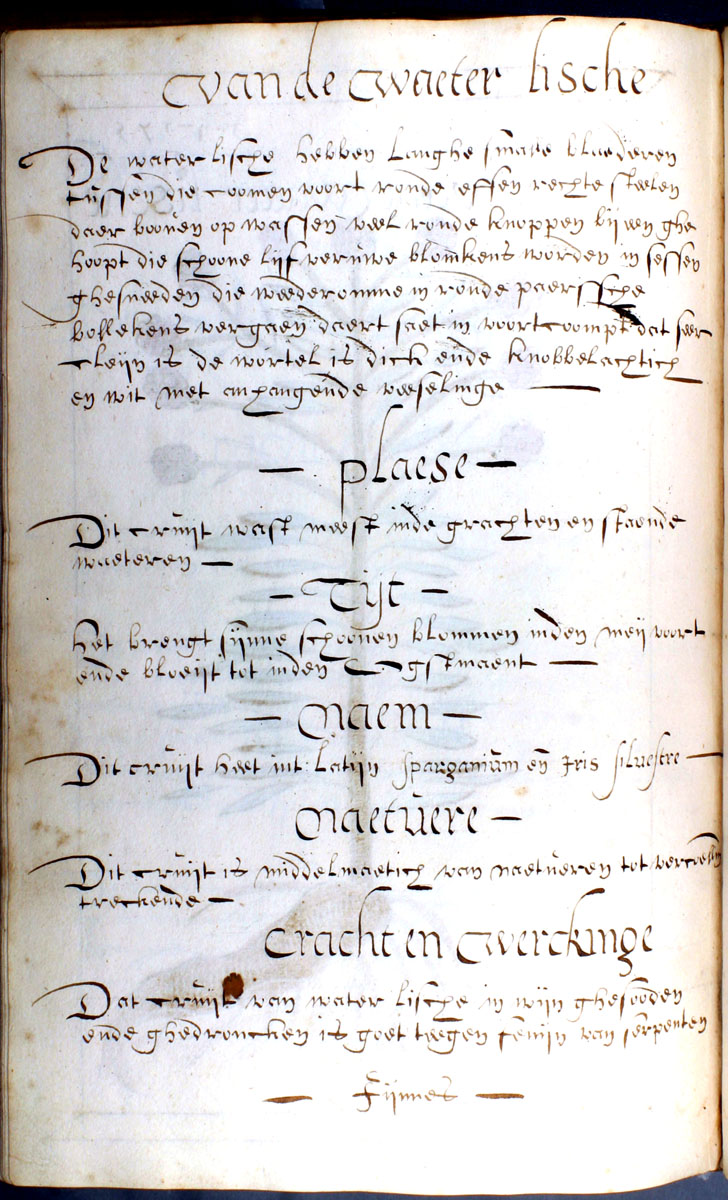 van de waeter lische
De water lische hebben langhe smalle blaederen
tussen die coomen voort ronde effen rechte steelen
daer booven op wassen veel ronde knoppen bij een ghe
hoopt die schoone lijf veruwe blomkens worden in sessen
ghesneeden die weederomme in ronde paerssche
bollekens vergaen daert saet in voortcoompt dat seer
cleijn is de wortel is dick ende knobbelachtich
en wit met anhangende veeselinge —
— plaese —
Dit cruijt wast meest inde grachten en staende
waeteren —
— Tijt —
het brengt sijnne schoonen blommen inden meij voort
ende bloeijt tot inden Oogstmaent —
— Naem —
Dit cruijt heet int Latijn sparganium en Iris siluestre —
Naetuere —
Dit cruijt is middelmaetich van naetueren tot vercoelen
treckende —
cracht en werckinge
Dat cruijt van water lische in wijn ghesooden
ende ghedroncken is goet teegen fenijn van serpenten
— Fijnnes —